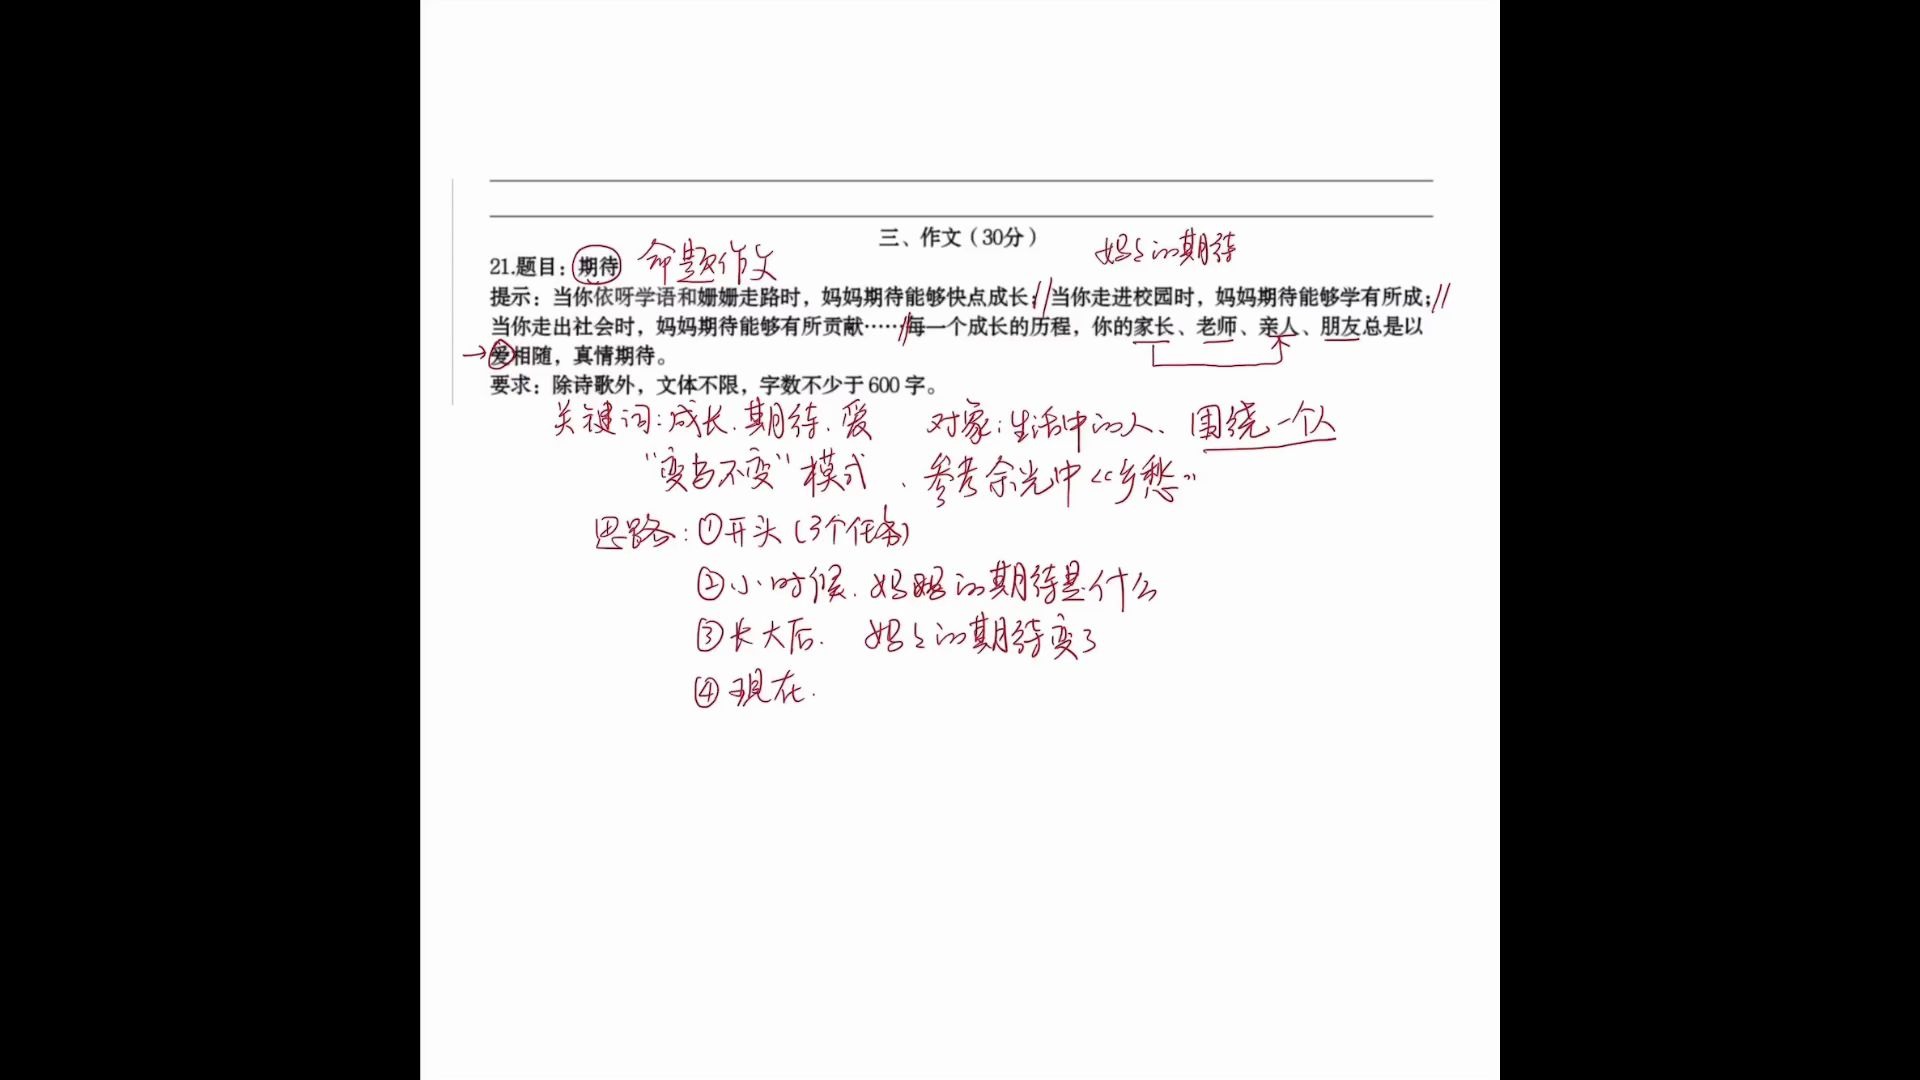 三、作文（30分）
妈妈的期待
21.题目：期待 命题作文
提示：当你依呀学语和姗姗走路时，妈妈期待能够快点成长；当你走进校园时，妈妈期待能够学有所成；
当你走出社会时，妈妈期待能够有所贡献……每一个成长的历程，你的家长、老师、亲人、朋友总是以
爱相随，真情期待。
要求：除诗歌外，文体不限，字数不少于600字。
关键词：成长、期待、爱 对象：生活中的人、围绕一个人
“变与不变”模式、参考余光中《乡愁》
思路：①开头（3个任务）
②小时候、妈妈的期待是什么
③长大后、妈妈的期待变了
④现在、